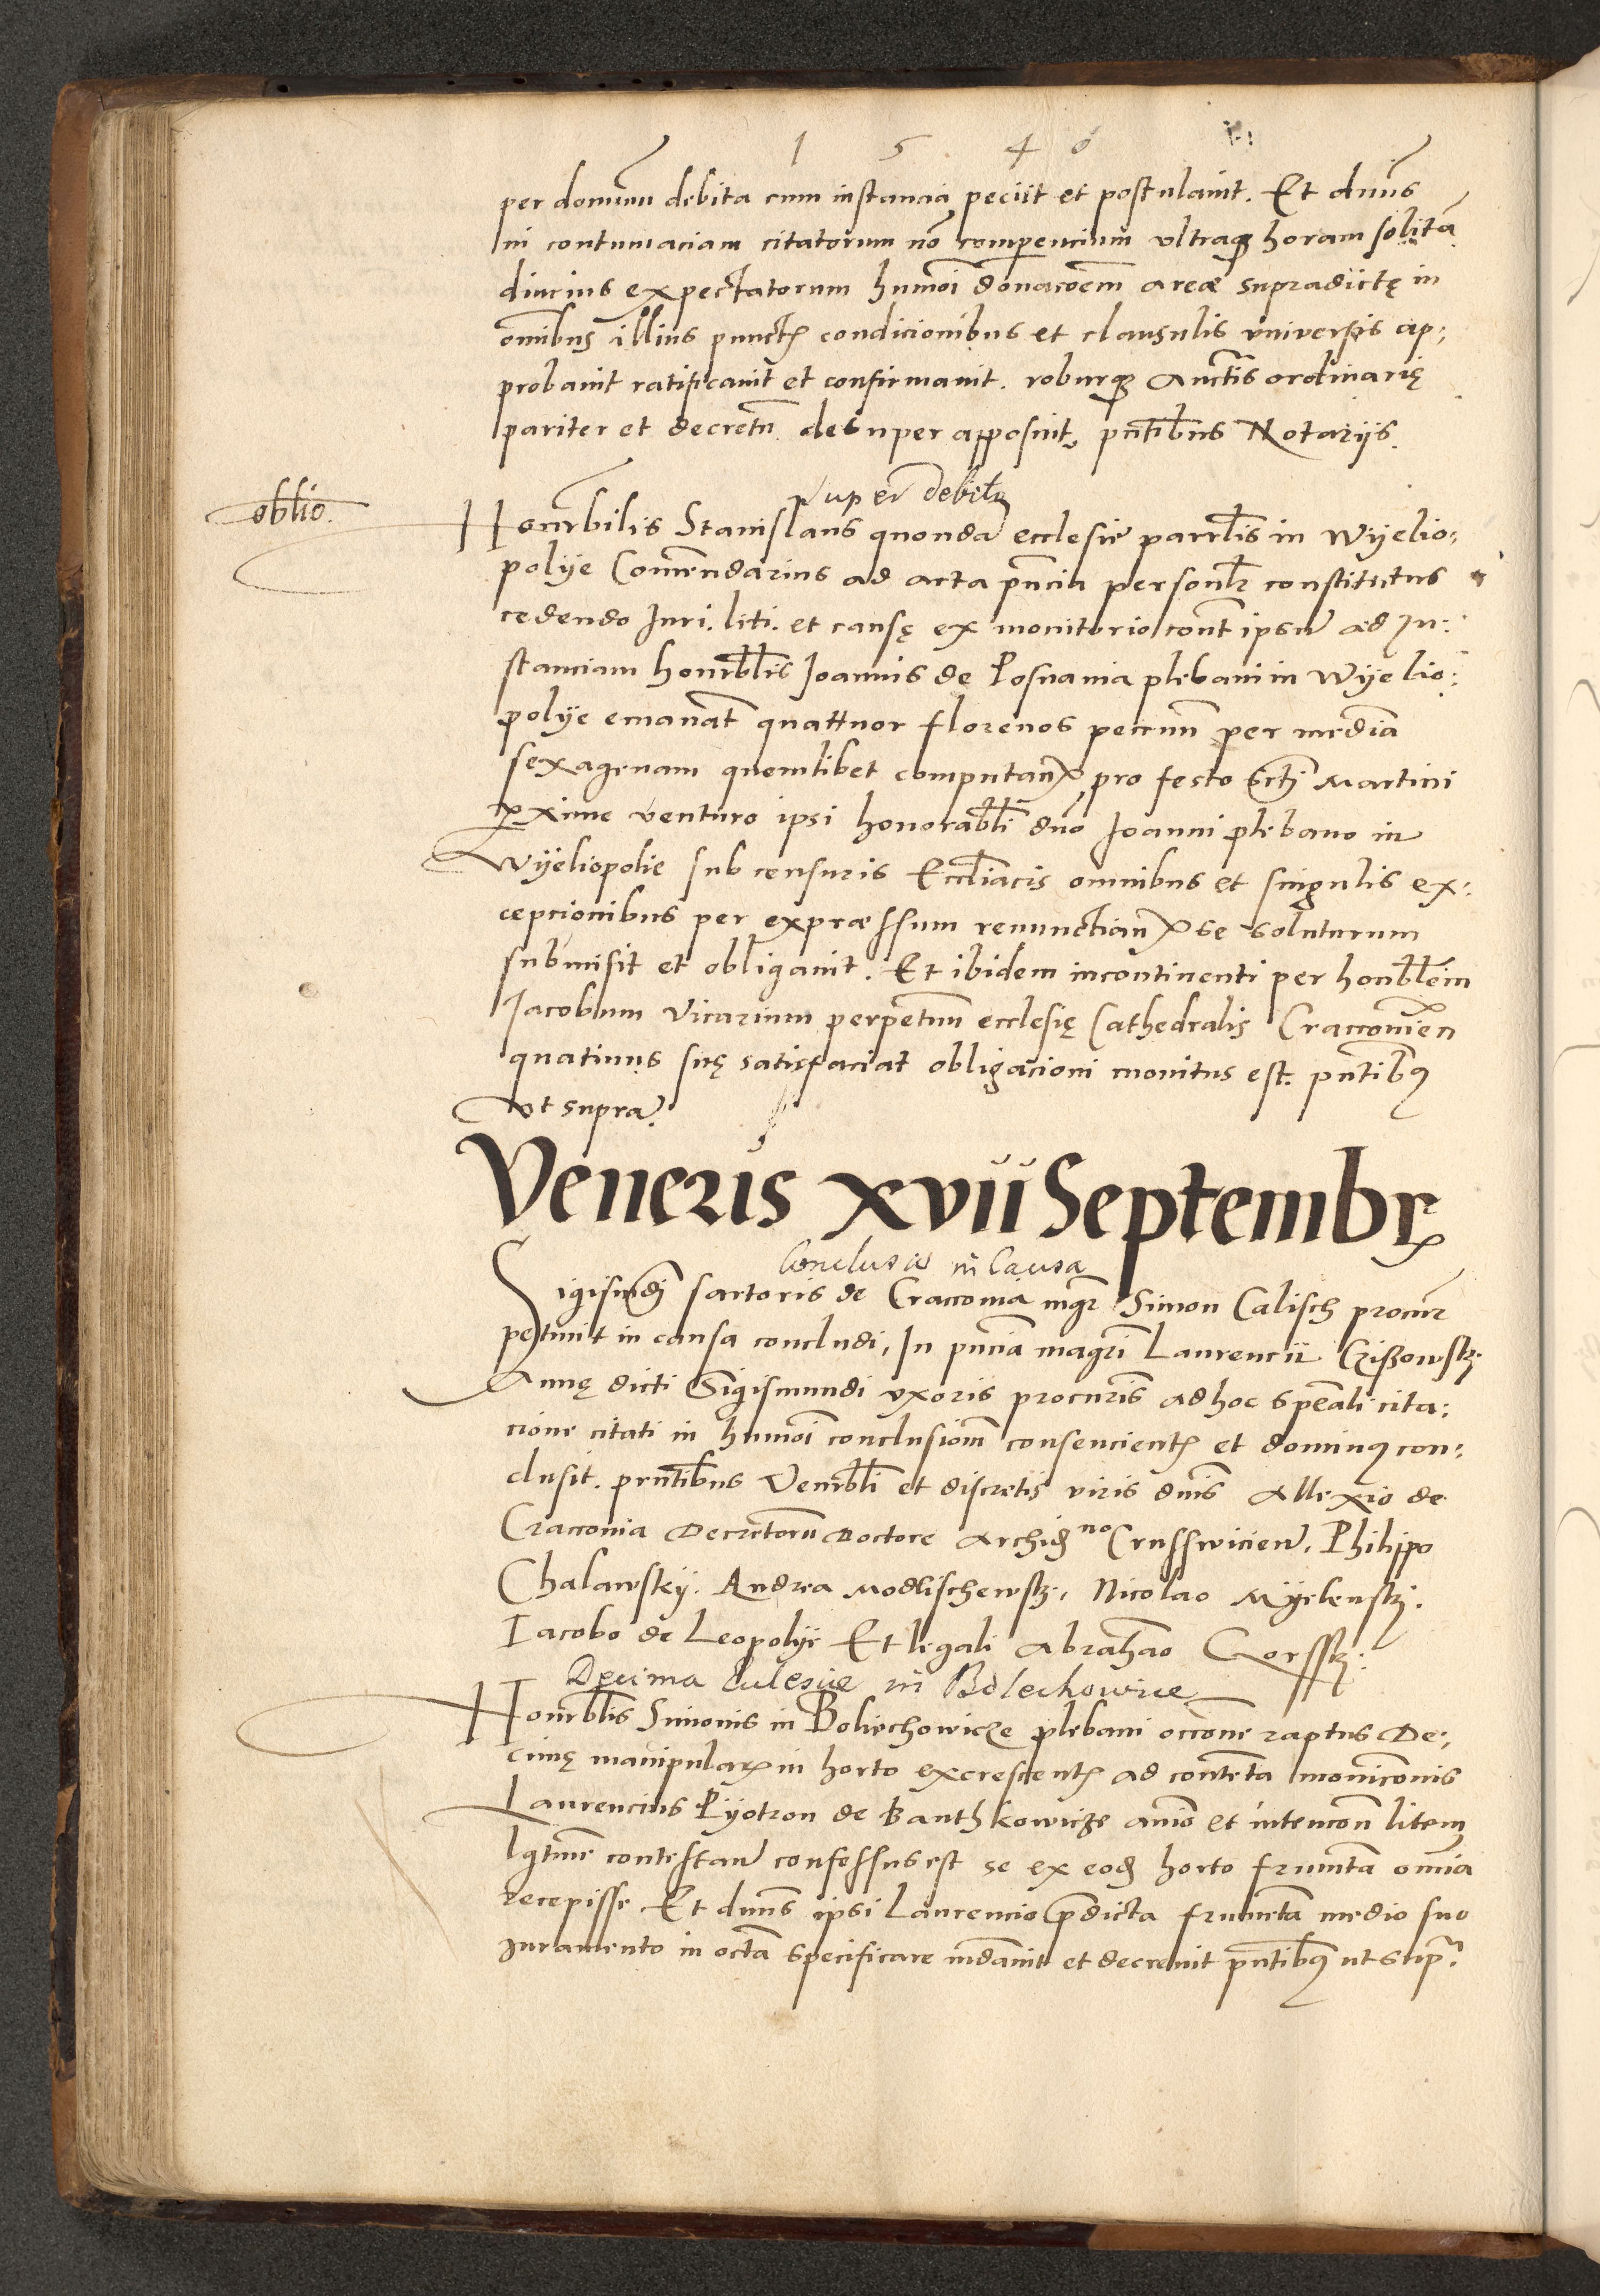 1546
per dominum debita cum instancia peciit et postulavit. Et dnus
in contumaciam citatorum nō comparencium vltraqꝫ horam solitā
diucius expectatorum hmōi donacoēm areæ supradictę in
omībus illius punctꝭ condicionibus et clausulis vniversis ap:
probavit ratificavit et confirmavit. roburqꝫ Auctīs ordinarię
pariter et decretū desuper apposuit, pntibus Notariis.
super debito
oblīo.
Honrabilis Stanislaus quondā ecclesie parrlis in Wyelio:
polye Comendarius ad acta pncia personlr constitutus
cedendo Juri. liti. et causę ex monitorio cont ipsum ad In:
stanciam honrblis Joannis de Posnania plebani in Wyelio:
polye emanat quattuor florenos pecun per mediā
sexagenam quemlibet computanꝭ pro festo Scti Martini
pxime venturo ipsi honorabli dno Joanni plebano in
Wyeliopolie sub censuris Ecclīacis omnibus et singulis ex:
cepcionibus per expræssum renunctianꝭ se soluturum
submisit et obligavit. Et ibidem incontinenti per honblem
Jacobum Vicarium perpetuum ecclesię Cathedralis Craccovien
quatinus suę satisfaciat obligacioni monitus est. pntibꝰ
vt supra.
Veneris xvii Septembrꝭ
Conclusio in Causa
Sigismdi sartoris de Craccovia mgr Simon Calisch procur
petivit in causa concludi, In pncia magri Laurencii Czißowskj.
Annę dicti Sigismundi vxoris procuris ad hoc speali cita:
cione citati in hmōi conclusionem consencientꝭ et dominꝰ con:
clusit. prntibus Venrbli et discretis viris dnis Allexio de
Craccovia Decretorū Doctore Archid no Crusswicien, Philippo
Chalawsky. Andrea Modlischewskj, Nicolao Myelenskj.
Iacobo de Leopolye Et legali Abrahāo Gorsskj:
Decima Eclesie in Bolechowice
Honrblis Simonis in Boliechowicze plebani occōne raptus De:
cimę manipularꝭ in horto excrescentꝭ ad contenta moniconis
Laurencius Pyotron de Banthkowicze anīo et intencon litem
lgtime contestan confessus est se ex eod horto frumta omīa
recepisse Et dnus ipsi Laurencio pdicta frumeta medio suo
Iuramento in octa specificare mdavit et decrevit pntibꝰ ut supr.